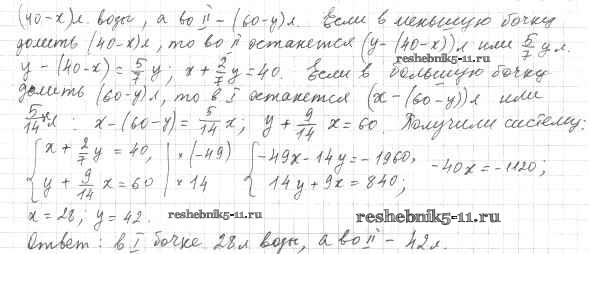 (40-x)л воды, а во II – (60-y)л. Если в меньшую бочку
долить (40-x)л, то во II останется (y-(40-x))л или 5/7 y л.
reshebnik5-11.ru
y-(40-x) = 5/7 y; x + 2/7 y = 40. Если в большую бочку
долить (60-y)л, то в I останется (x-(60-y))л или
5/14 x л: x-(60-y) = 5/14 x; y + 9/14 x = 60 Получили систему:
{ x + 2/7 y = 40, | × (-49) { -49x - 14y = -1960, -40x = -1120;
y + 9/14 x = 60 | × 14 14y + 9x = 840;
x = 28; y = 42. reshebnik5-11.ru reshebnik5-11.ru
Ответ: в I бочке 28л воды, а во II – 42л.